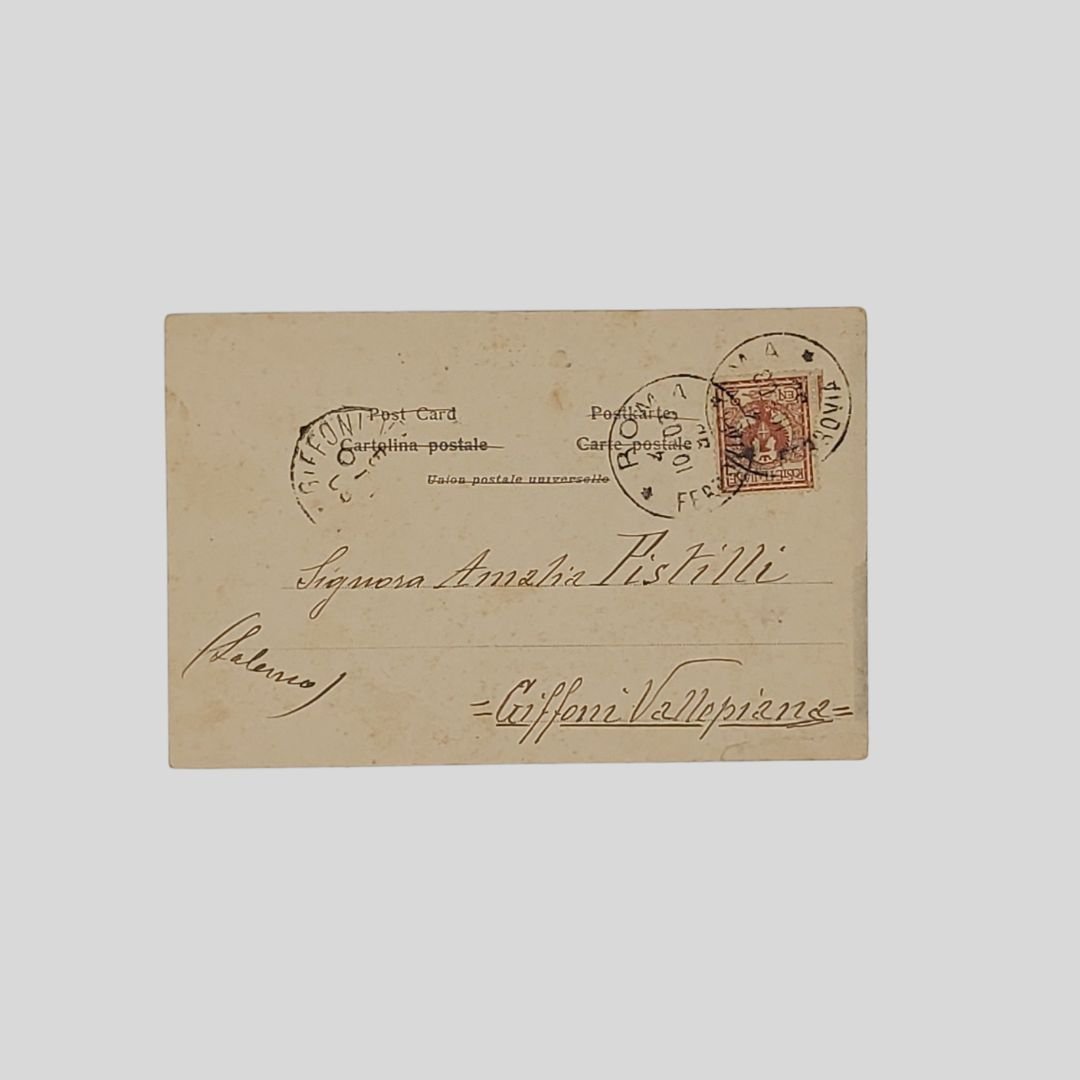 Post Card
Postkarte
Cartolina postale
Carte postale
Union postale universelle
GIFFONI
ROMA
FERROVIA
Signora Amalia Pistilli
(Salerno)
=Giffoni Vallepiana=